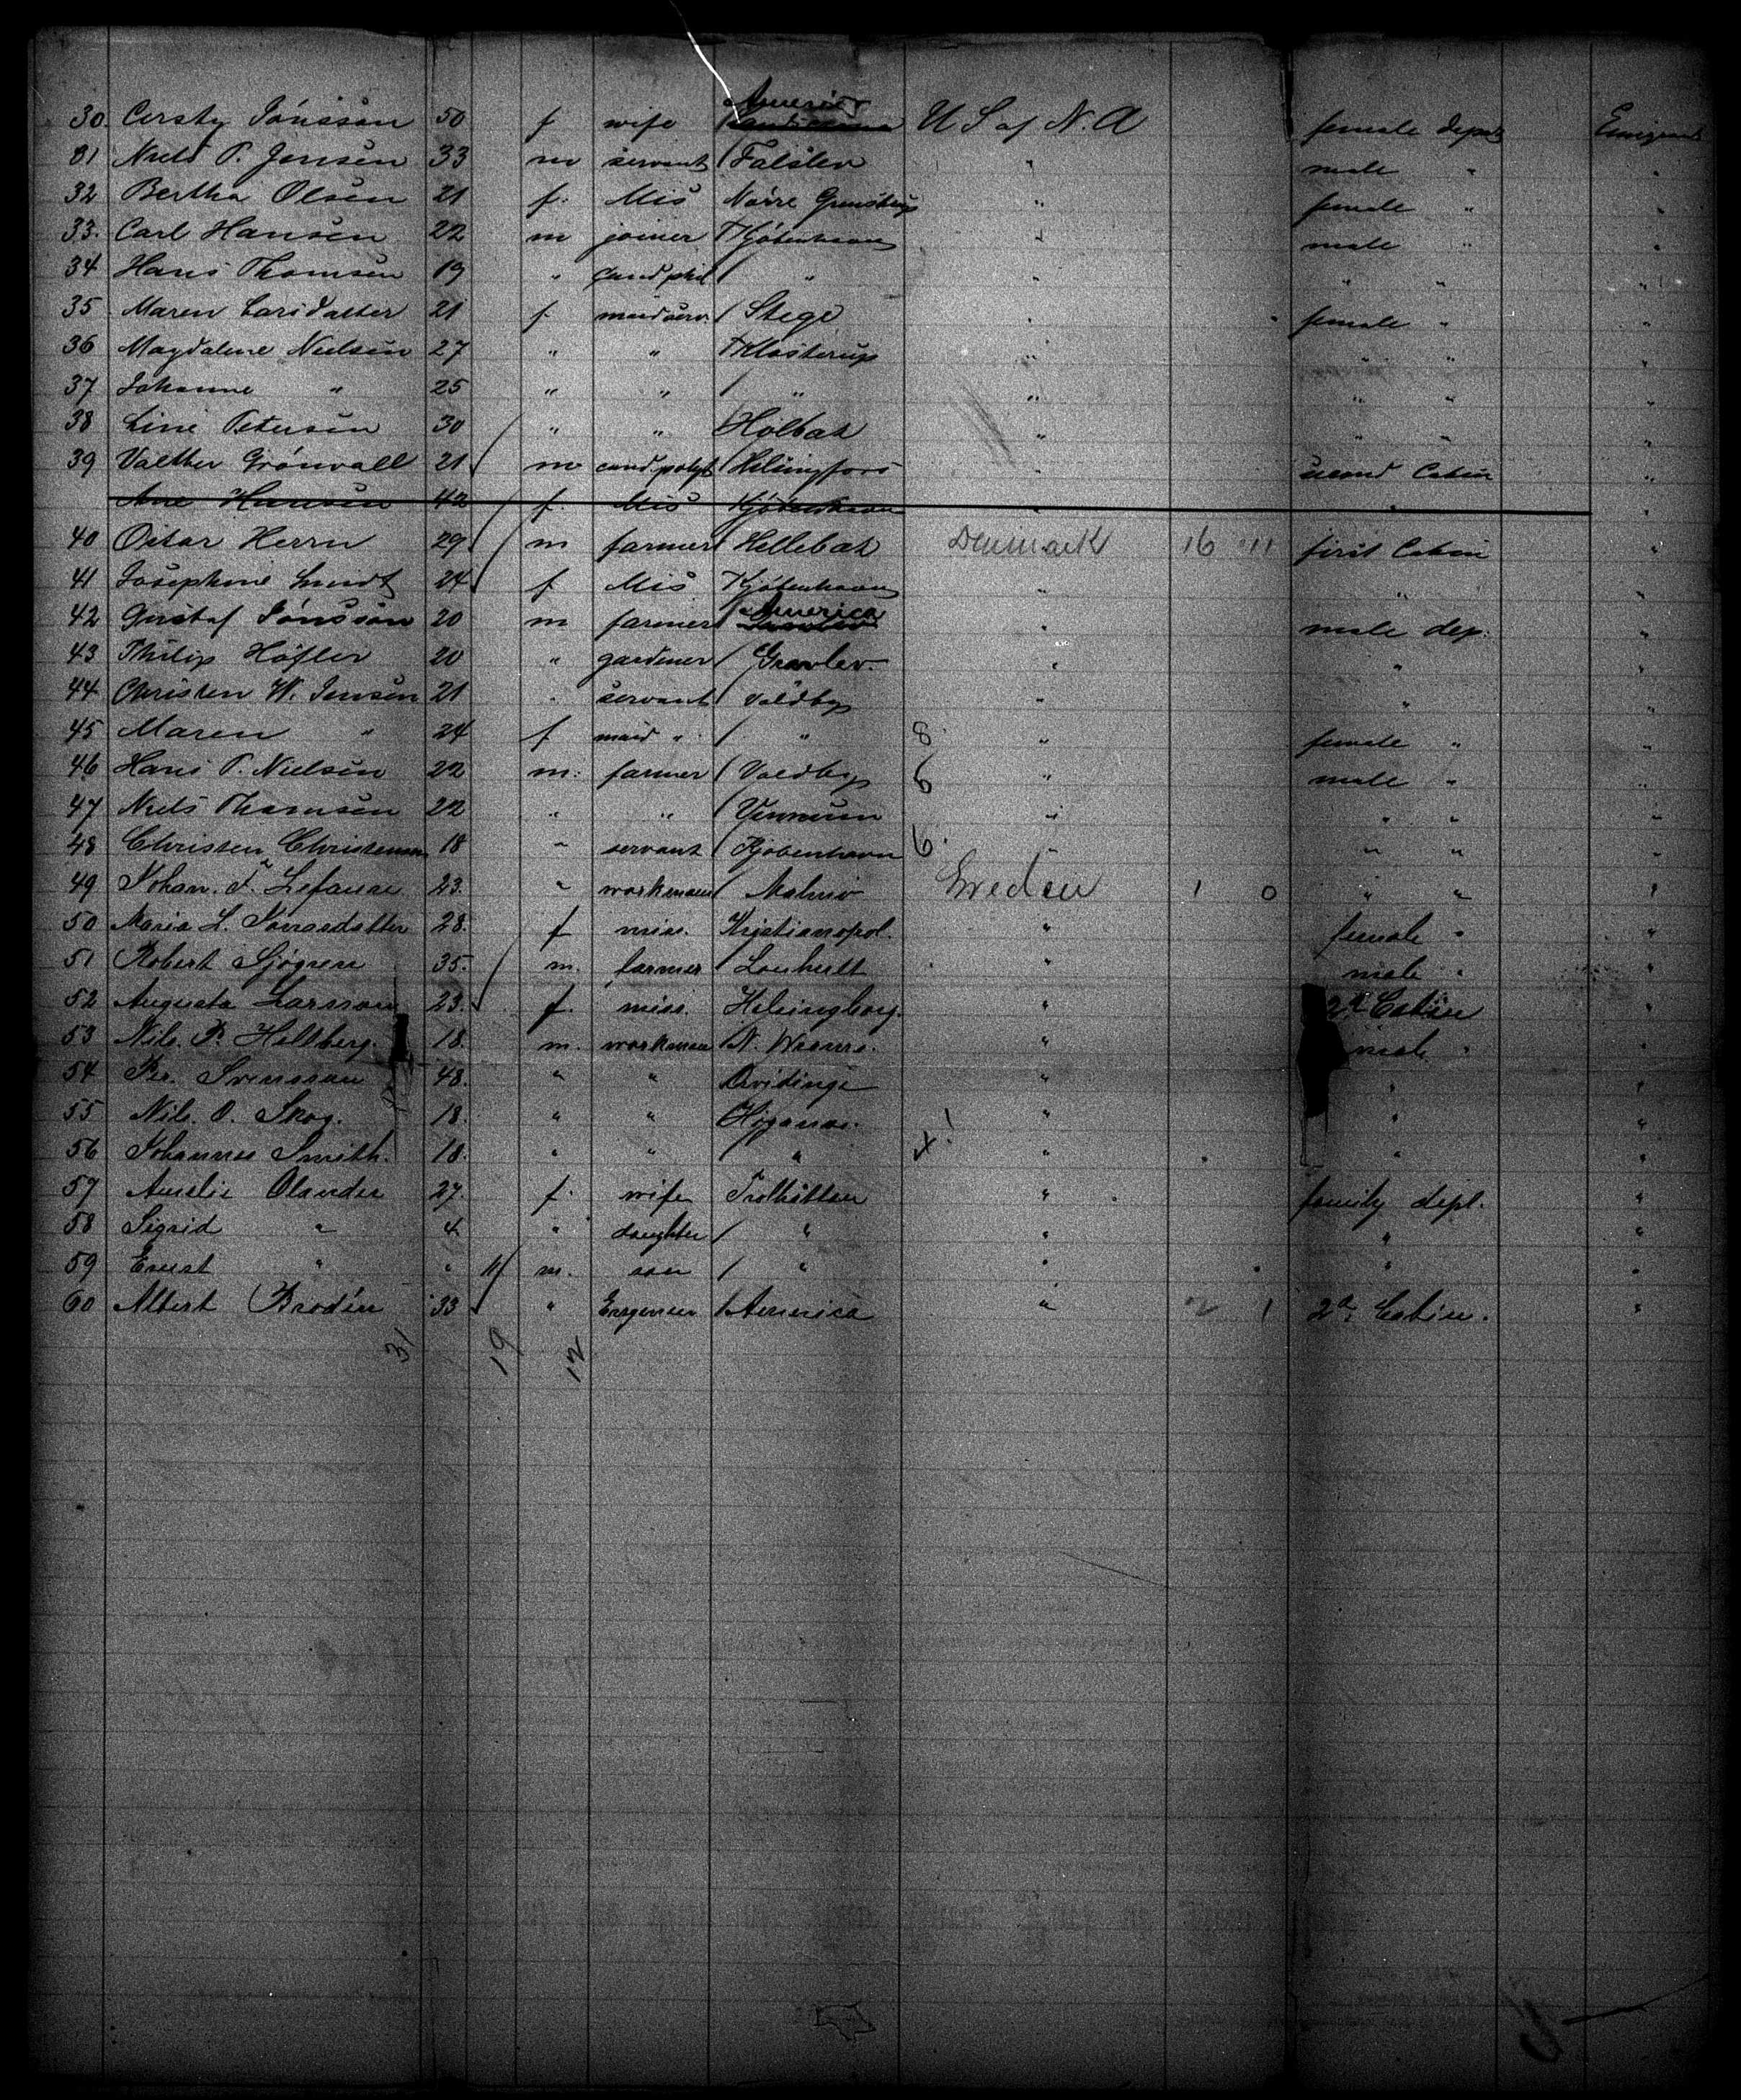 America
30. Cersty Jönsson 50 f wife U S of N. A female dept Emigrant
31 Niels P. Jensen 33 m servant Falslev " male " "
32 Bertha Olsen 21 f. Mis Nörre " female " "
33. Carl Hansen 22 m joiner Kjöbenhavn " male " "
34 Hans Thomsen 19 " cand phil " " " " "
35 Maren Larsdatter 21 f. maidserv. Stege " female " "
36 Magdalene Nielsen 27 " " Klosterup " " " "
37 Johanne " 25 " " " " " " "
38 Line Petersen 30 " " Holbæk " " " "
39 Valther Grönvall 21 m cand polyt Helsingfors " second Cabin "
Ane Hansen 42 f. Mis Kjöbenhavn " " "
40 Oscar Herrn 29 m farmer Hellebæk Denmark 16 11 first Cabin "
41 Josephine Smidt 24 f Mis Kjöbenhavn " " "
42 Gustaf Jönsson 20 m farmer America " male dep. "
43 Philip Höfler 20 " gardener Gravlev " " "
44 Christen W. Jensen 21 " servant Voldby " " "
45 Maren " 24 f maid " " 8 " female " "
46 Hans P. Nielsen 22 m. farmer Voldby 6 " male " "
47 Niels Thomsen 22 " " " " " "
48 Christen Christensen 18 " servant Kjöbenhavn 6 " " " "
49 Johan. F. 23. " workman Malmö Sweden 1 0 " " "
50 Maria L. 28. f miss. Kristianopel. " female " "
51 Robert Sjögren 35. m. farmer Lonhult " male " "
52 Augusta Larsson 23. f. miss. Helsingborg. " 2d Cabin "
53 Nils. P. Hellberg. 18. m. workman N. " male " "
54 Pr. Svensson 48. " " Qvidinge " " "
55 Nils. O. Skog. 18. " " Höganäs. " " "
56 Johannes Smith. 18. " " " " " "
57 Amelie Olander 27. f. wife Trolhättan " family dept. "
58 Sigrid " 4 " daughter " " " "
59 Ernst " " 11 m. son " " " "
60 Albert Brodén 33 " Engineer America " 2 1 2d Cabin. "
31 19 12